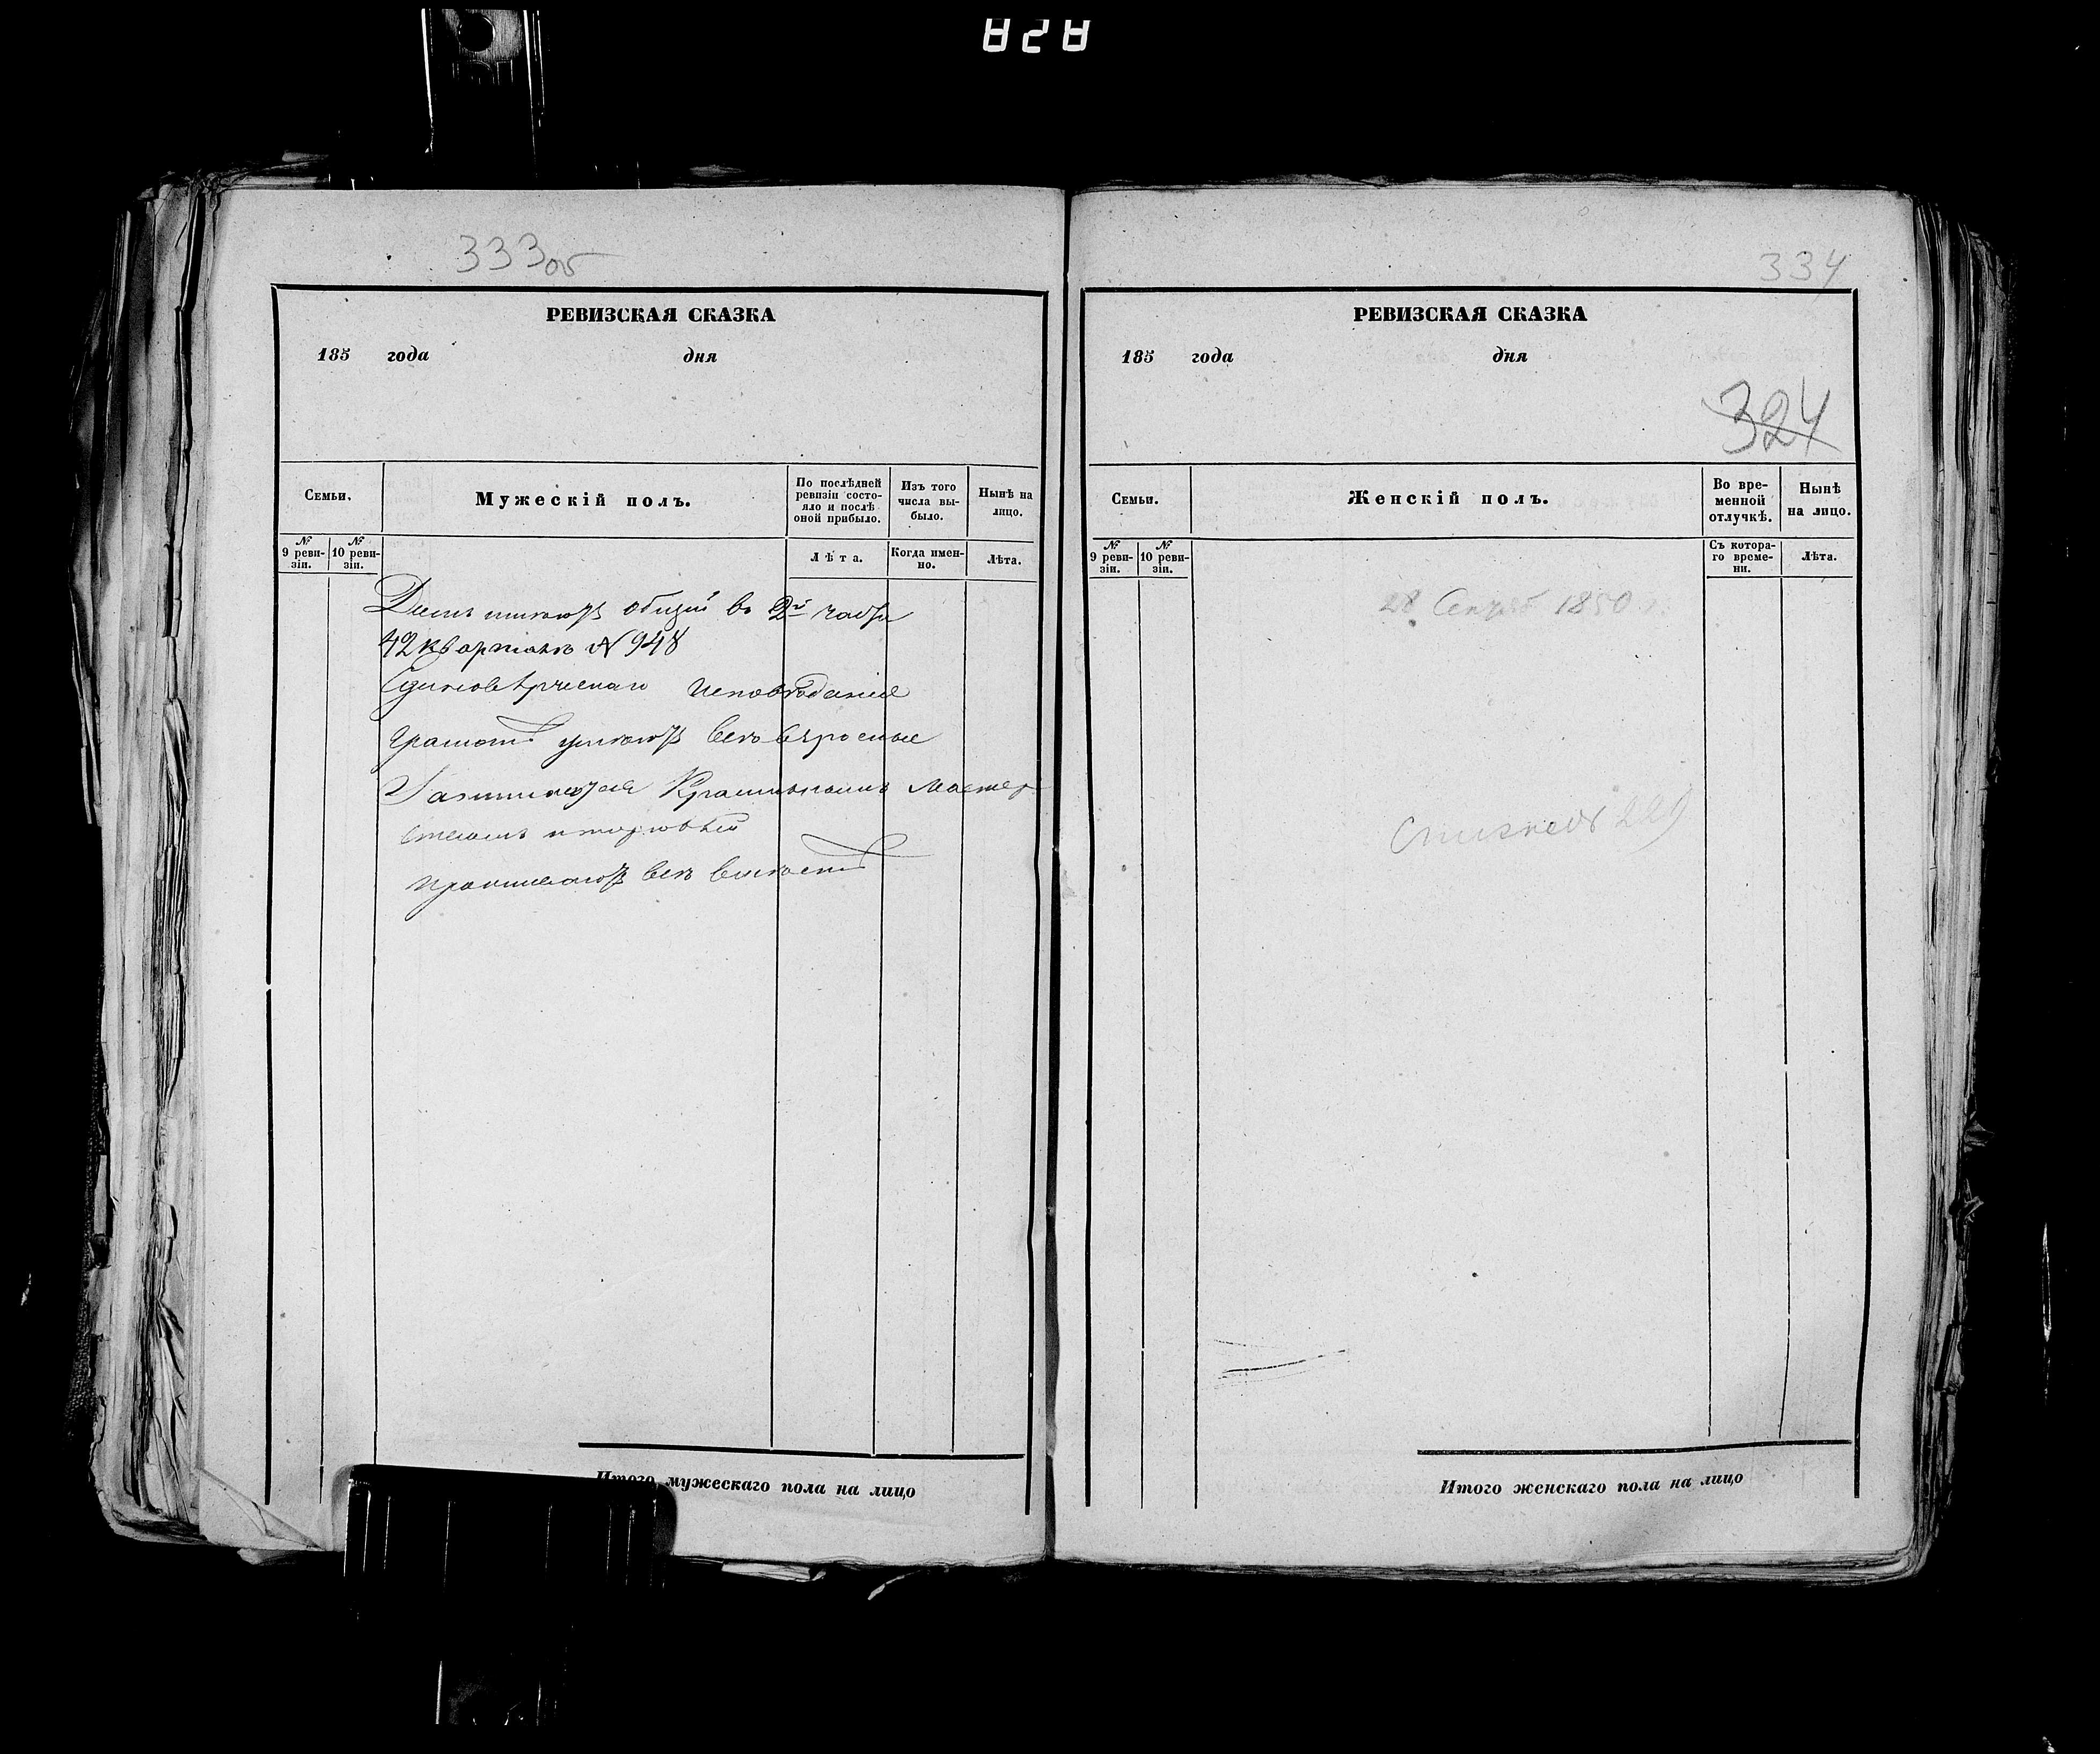 828
333об
РЕВИЗСКАЯ СКАЗКА
185 года дня
Семьи.
Мужескій полъ.
По послѣдней ревизіи состояло и послѣ оной прибыло.
Изъ того числа выбыло.
Нынѣ на лицо.
№ 9 ревизіи.
№ 10 ревизіи.
Лѣта.
Когда именно.
Лѣта.
Домъ имѣютъ общій во 2й части
42 кварталѣ № 948
Единовѣрческаго исповѣданія
Грамотѣ умѣютъ всѣ взрослые
Занимаются Красильнымъ мастер
ствомъ и торговлей
проживаютъ всѣ вмѣстѣ
Итого мужескаго пола на лицо
334
РЕВИЗСКАЯ СКАЗКА
185 года дня
324
Семьи.
Женскій полъ.
Во временной отлучкѣ.
Нынѣ на лицо.
№ 9 ревизіи.
№ 10 ревизіи.
Съ котораго времени.
Лѣта.
28 1850
Итого женскаго пола на лицо